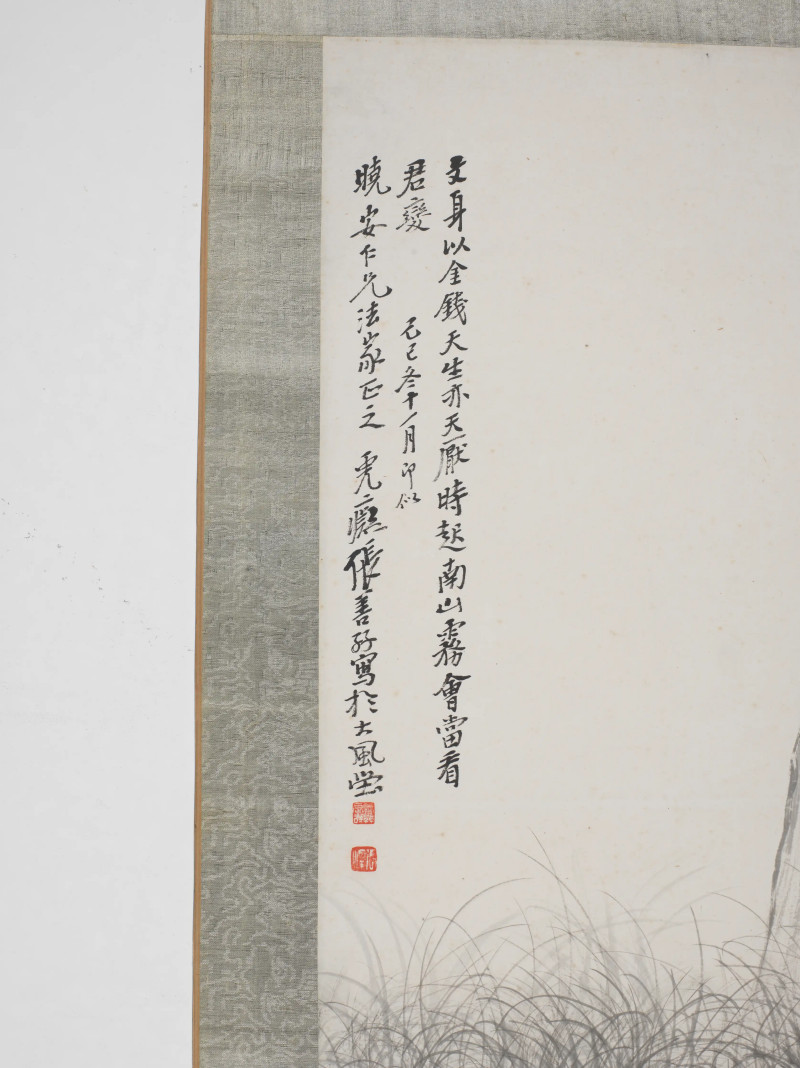 文身以金錢天生亦天厭時起南山霧會當看
君變 己巳冬十一月印似
曉安仁兄法家正之 虎癡張善孖寫於大風堂